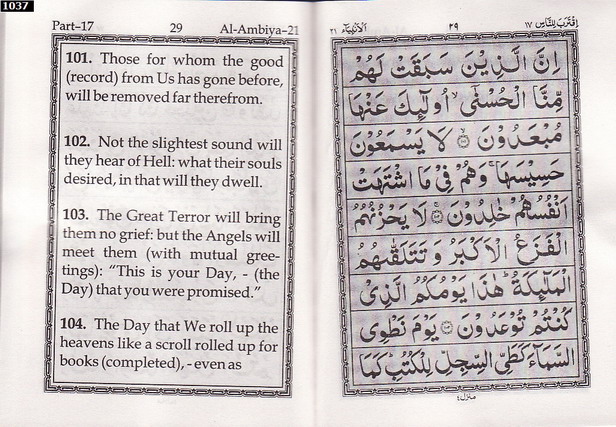 1037
Part–17 29 Al-Ambiya–21
101. Those for whom the good
(record) from Us has gone before,
will be removed far therefrom.
102. Not the slightest sound will
they hear of Hell: what their souls
desired, in that will they dwell.
103. The Great Terror will bring
them no grief: but the Angels will
meet them (with mutual gree-
tings): “This is your Day, - (the
Day) that you were promised.”
104. The Day that We roll up the
heavens like a scroll rolled up for
books (completed), - even as
اقترب للناس ۱۷ ۲۹ الانبیاء ۲۱
اِنَّ الَّذِيْنَ سَبَقَتْ لَهُمْ
مِّنَّا الْحُسْنٰٓى ۙ اُولٰٓئِكَ عَنْهَا
مُبْعَدُوْنَ ۝۱۰۱ لَا يَسْمَعُوْنَ
حَسِيْسَهَا ۚ وَهُمْ فِيْ مَا اشْتَهَتْ
اَنْفُسُهُمْ خٰلِدُوْنَ ۝۱۰۲ لَا يَحْزُنُهُمُ
الْفَزَعُ الْاَكْبَرُ وَ تَتَلَقّٰىهُمُ
الْمَلٰٓئِكَةُ ؕ هٰذَا يَوْمُكُمُ الَّذِيْ
كُنْتُمْ تُوْعَدُوْنَ ۝۱۰۳ يَوْمَ نَطْوِي
السَّمَآءَ كَطَيِّ السِّجِلِّ لِلْكُتُبِ ؕ كَمَا
منزل ٤